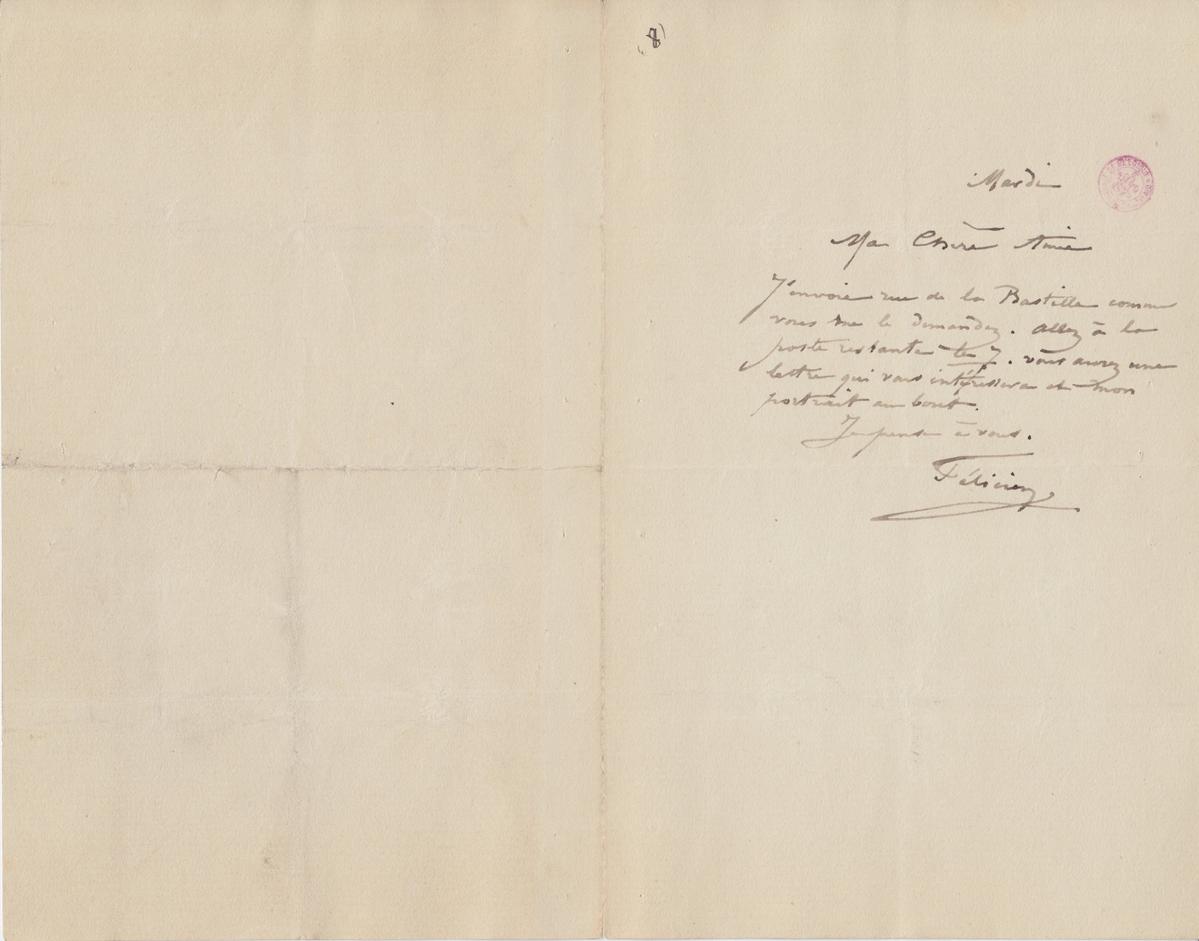 (8)
Mardi
Ma Chère Amie
J'envoie rue de la Bastille comme
vous me le demandez. Allez à la
poste restante le 7. vous aurez une
lettre qui vous intéressera et mon
portrait au bout.
Je pense à vous.
Félicien